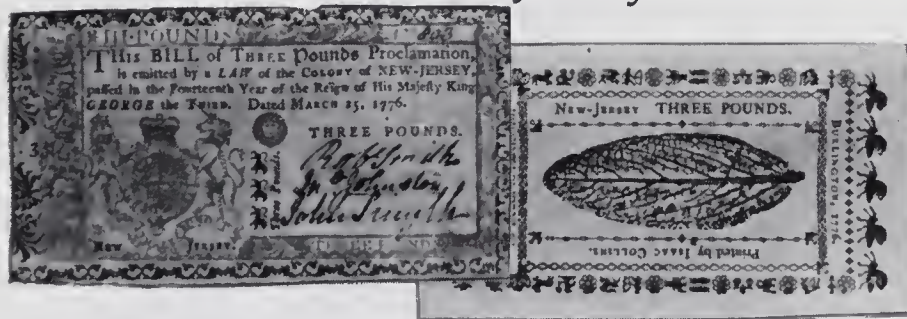 III-POUNDS
803
THIS BILL of THREE Pounds Proclamation,
is emitted by a LAW of the COLONY of NEW-JERSEY,
passed in the Fourteenth Year of the Reign of His Majesty King
GEORGE the THIRD. Dated MARCH 25, 1776.
THREE POUNDS.
Three Pounds.
Robt Smith
Jn Johnston
John Smyth
NEW JERSEY.
NEW-JERSEY THREE POUNDS.
BURLINGTON, 1776.
Printed by ISAAC COLLINS.